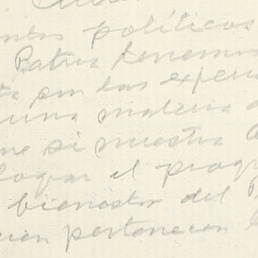 políticos
Patria tenemos
por las exper
una manera d
ue si nuestra
lograr el progr
bienestar del P
uien pertenecen